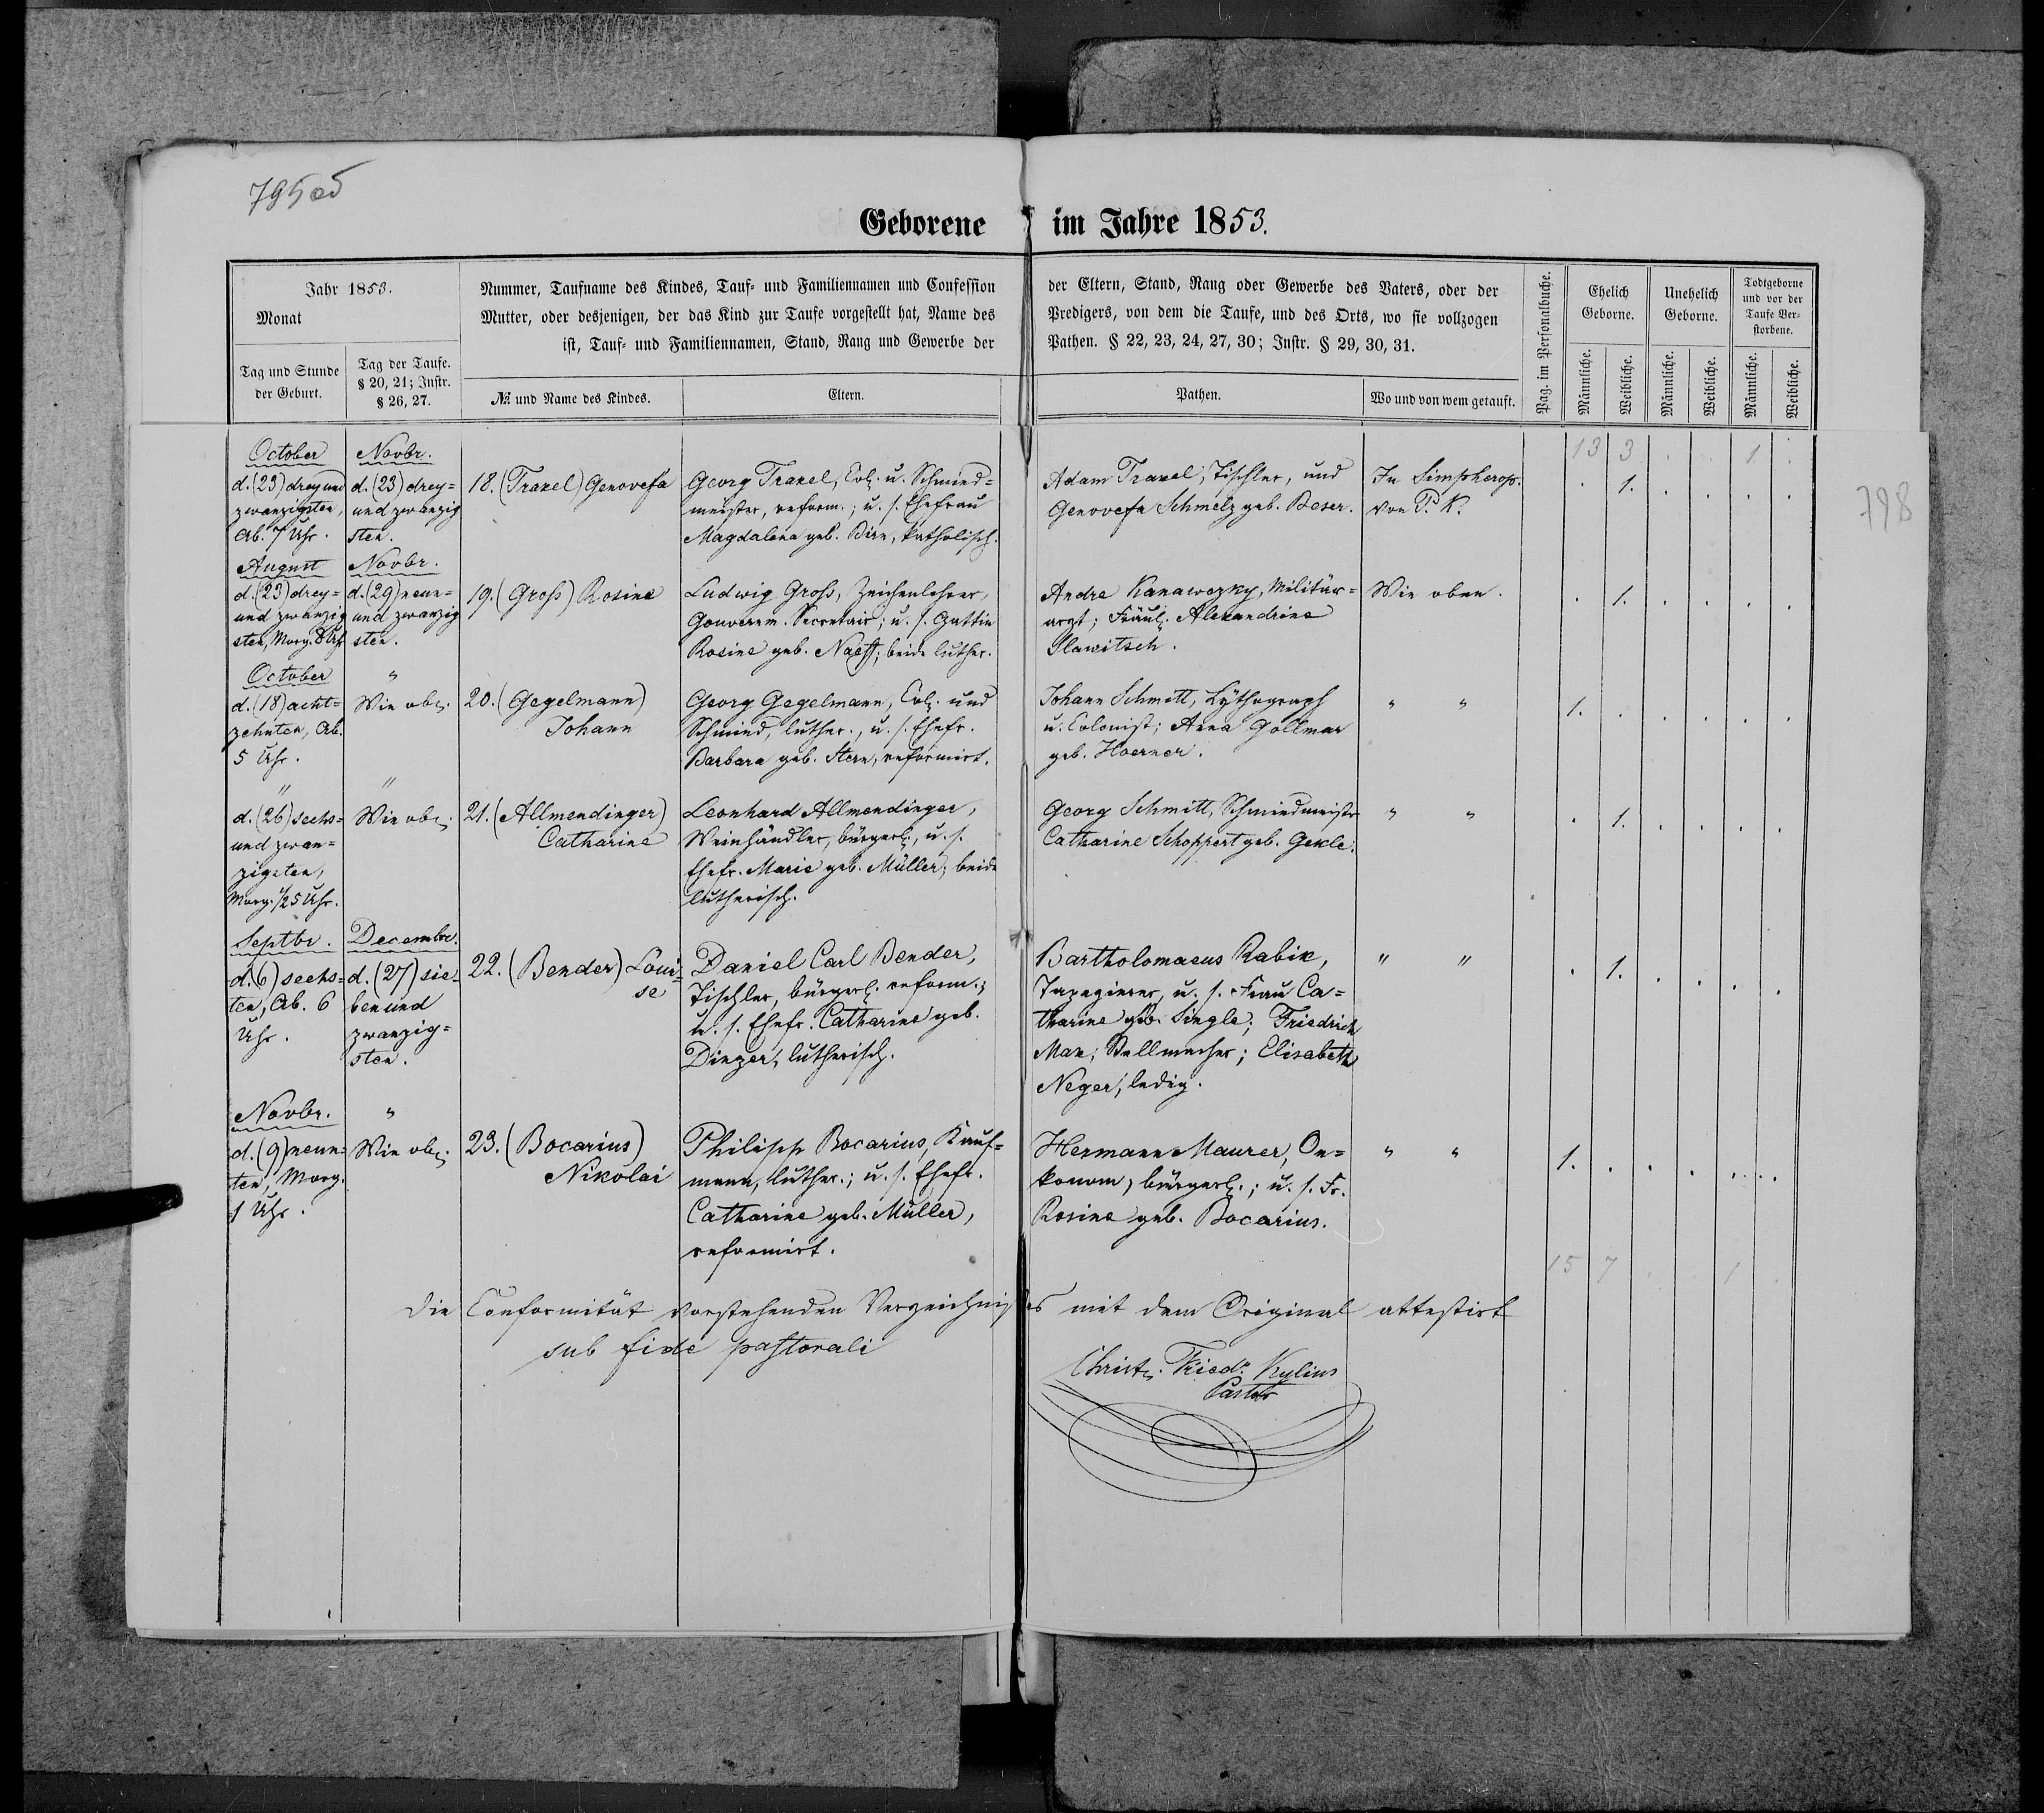 795 об
Geborene im Jahre 1853.
Jahr 1853.
Monat
Tag und Stunde
der Geburt.
Tag der Taufe.
§ 20, 21; Instr.
§ 26, 27.
Nummer, Taufname des Kindes, Tauf- und Familiennamen und Confession
Mutter, oder desjenigen, der das Kind zur Taufe vorgestellt hat, Name des
ist, Tauf- und Familiennamen, Stand, Rang und Gewerbe der
№ und Name des Kindes.
Eltern.
der Eltern, Stand, Rang oder Gewerbe des Vaters, oder der
Predigers, von dem die Taufe, und des Orts, wo sie vollzogen
Pathen. § 22, 23, 24, 27, 30; Instr. § 29, 30, 31.
Pathen.
Wo und von wem getauft.
Pag. im Personalbuche.
Ehelich
Geborne.
Unehelich
Geborne.
Todtgeborne
und vor der
Taufe Ver-
storbene.
Männliche.
Weibliche.
Männliche.
Weibliche.
Männliche.
Weibliche.
13 3 . . 1 .
798
October
d. (23) drey und
zwanzigsten,
Ab. 7 Uhr.
Novbr.
d. (23) drey=
und zwanzig
sten.
18. (Traxel) Genovefa
Georg Traxel, Col. u. Schmied=
meister, reform.; u. s. Ehefrau
Magdalena geb. Birn, katholisch.
Adam Traxel, Tischler, und
Genovefa Schmelz geb. Beser.
In Simpherop.
von P. K.
. 1. . . . .
August
d. (23) drey=
und zwanzig
sten, Morg. 8 Uhr
Novbr.
d. (29) neun=
und zwanzig
sten.
19. (Groß) Rosine
Ludwig Groß, Zeichenlehrer,
Gouvernm. Secretair; u. s. Gattin
Rosine geb. Naeff; beide luther.
Andre Kanawezky, Militär=
arzt; Fräul. Alexandrine
Slawitsch.
Wie oben.
. 1. . . . .
October
d. (18) acht=
zehnten, Ab.
5 Uhr.
"
Wie ob.
20. (Gegelmann)
Johann
Georg Gegelmann, Col. und
Schmied, luther., u. s. Ehefr.
Barbara geb. Stern, reformirt.
Johann Schmitt, Lythograph
u. Colonist; Anna Gollmar
geb. Hoerner.
" "
1. . . . . .
"
d. (26) sechs=
und zwan=
zigsten,
Morg. 1/2 5 Uhr.
"
Wie ob.
21. (Allmendinger)
Catharine
Leonhard Allmendinger,
Weinhändler, bürgerl., u. s.
Ehefr. Marie geb. Müller; beide
lutherisch.
Georg Schmitt, Schmiedmeister
Catharine Schoppert geb. Gekle.
" "
. 1. . . . .
Septbr.
d. (6) sechs=
ten, Ab. 6
Uhr.
Decembr.
d. (27) sie=
ben und
zwanzig=
sten.
22. (Bender) Loui=
se
Daniel Carl Bender,
Tischler, bürgerl. reform.;
u. s. Ehefr. Catharine geb.
Dinger, lutherisch.
Bartholomaeus Rabik,
Tapezierer, u. s. Frau Ca=
tharine geb. Single; Friedrich
Max, Stellmacher; Elisabeth
Neger, ledig.
" "
. 1. . . . .
Novbr.
d. (9) neun=
ten, Morg.
1 Uhr.
"
Wie ob.
23. (Bocarius)
Nikolai
Philipp Bocarius, Kauf=
mann, luther.; u. s. Ehefr.
Catharine geb. Müller,
reformirt.
Hermann Maurer, Oe=
konom, bürgerl.; u. s. Fr.
Rosine geb. Bocarius.
" "
1. . . . . .
15 7 . . 1 .
Die Conformität vorstehenden Verzeichnisses mit dem Original attestirt
sub fide pastorali
Christ. Fried. Kylius
Pastor